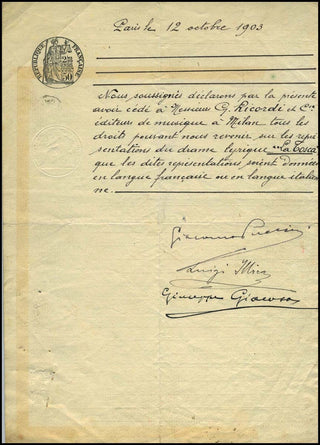 Paris le 12 octobre 1903
RÉPUBLIQUE FRANÇAISE
Nous soussignés déclarons par la présente
avoir cédé à Messieurs G. Ricordi et Cie
éditeurs de musique à Milan tous les
droits pouvant nous revenir sur les repré
sentations du drame lyrique "La Tosca"
que les dites représentations soient données
en langue française ou en langue italien
ne.
Giacomo Puccini
Luigi Illica
Giuseppe Giacosa